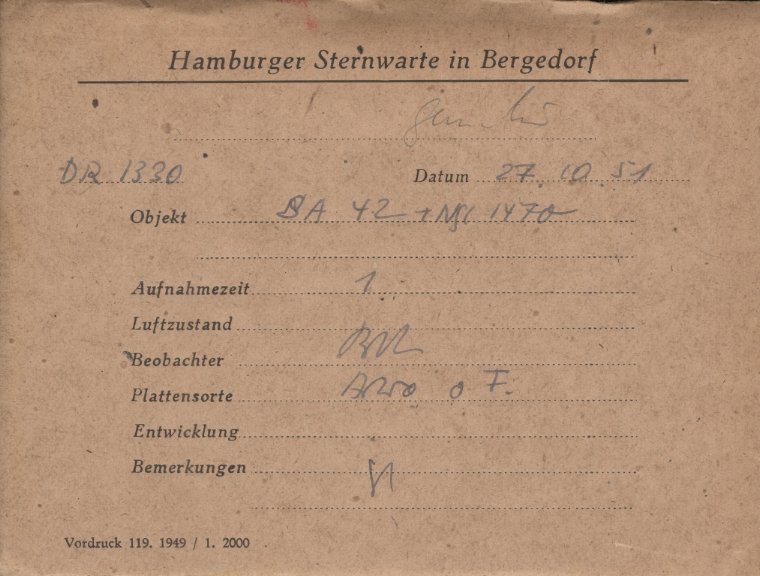 Hamburger Sternwarte in Bergedorf
DR 1330 Datum 27. 10. 51
Objekt SA 42 + 1470
Aufnahmezeit 1
Luftzustand
Beobachter
Plattensorte
Entwicklung
Bemerkungen
Vordruck 119. 1949 / 1. 2000